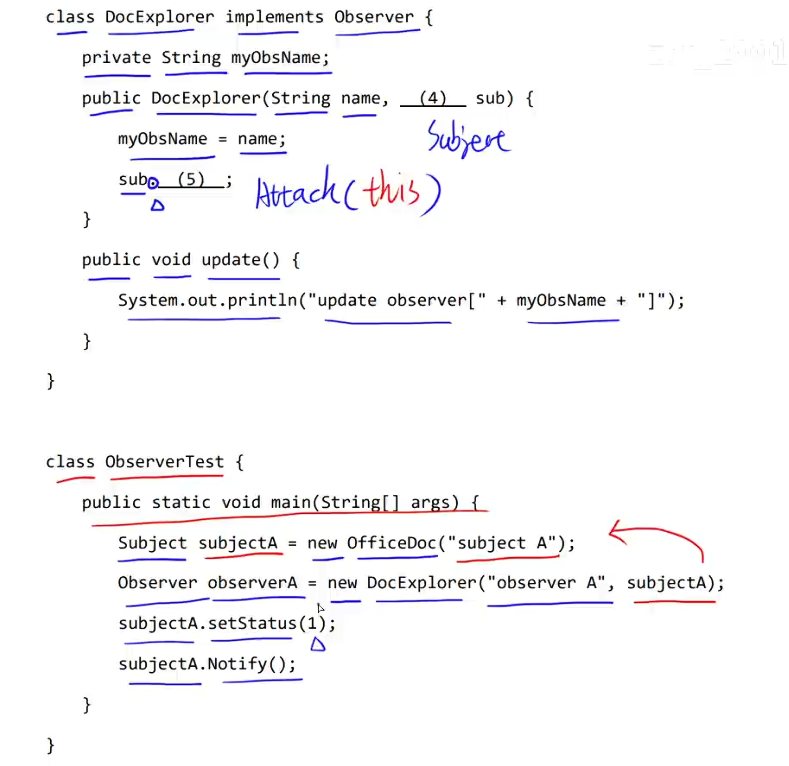 class DocExplorer implements Observer {
private String myObsName;
public DocExplorer(String name, __(4)__ sub) {
Subject
myObsName = name;
sub.__(5)__;
Attach(this)
}
public void update() {
System.out.println("update observer[" + myObsName + "]");
}
}
class ObserverTest {
public static void main(String[] args) {
Subject subjectA = new OfficeDoc("subject A");
Observer observerA = new DocExplorer("observer A", subjectA);
subjectA.setStatus(1);
subjectA.Notify();
}
}